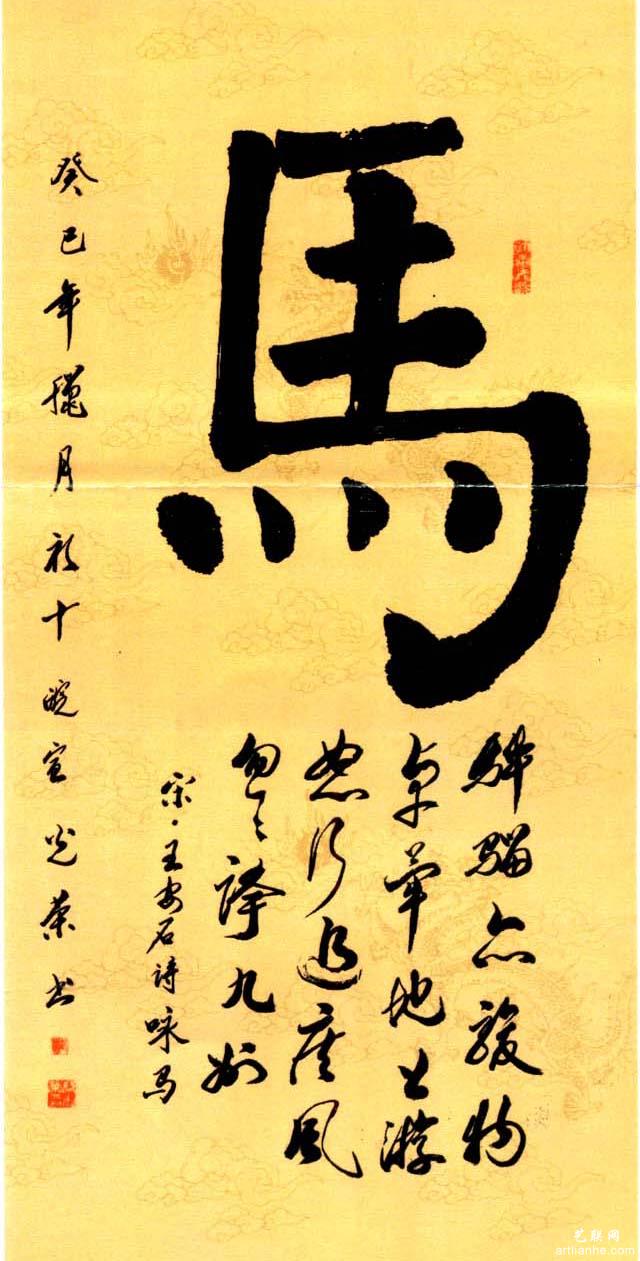 馬
驊騮亦駿物
卓犖地上游
怒行追疾風
忽々跨九州
宋·王安石詩咏马
癸巳年臘月初十皖宣光荣书
艺联网
artlianhe.com